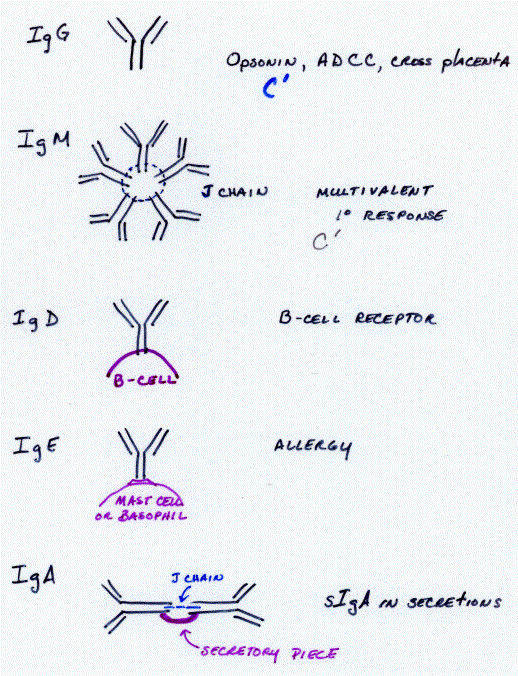 IgG
OPSONIN, ADCC, CROSS PLACENTA
C'
IgM
J CHAIN
MULTIVALENT
1° RESPONSE
C'
IgD
B-CELL RECEPTOR
B-CELL
IgE
ALLERGY
MAST CELL
OR BASOPHIL
IgA
J CHAIN
sIgA IN SECRETIONS
SECRETORY PIECE